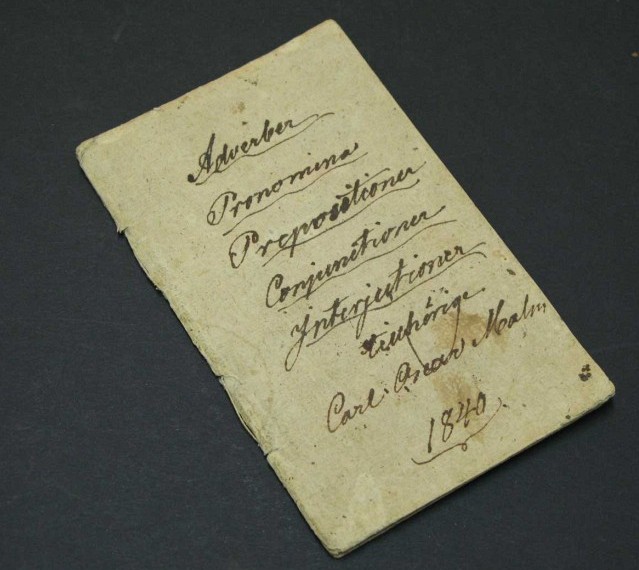 Adverber
Pronomina
Prepositioner
Conjunctioner
Interjectioner
tillhörige
Carl Oscar Malm
1840